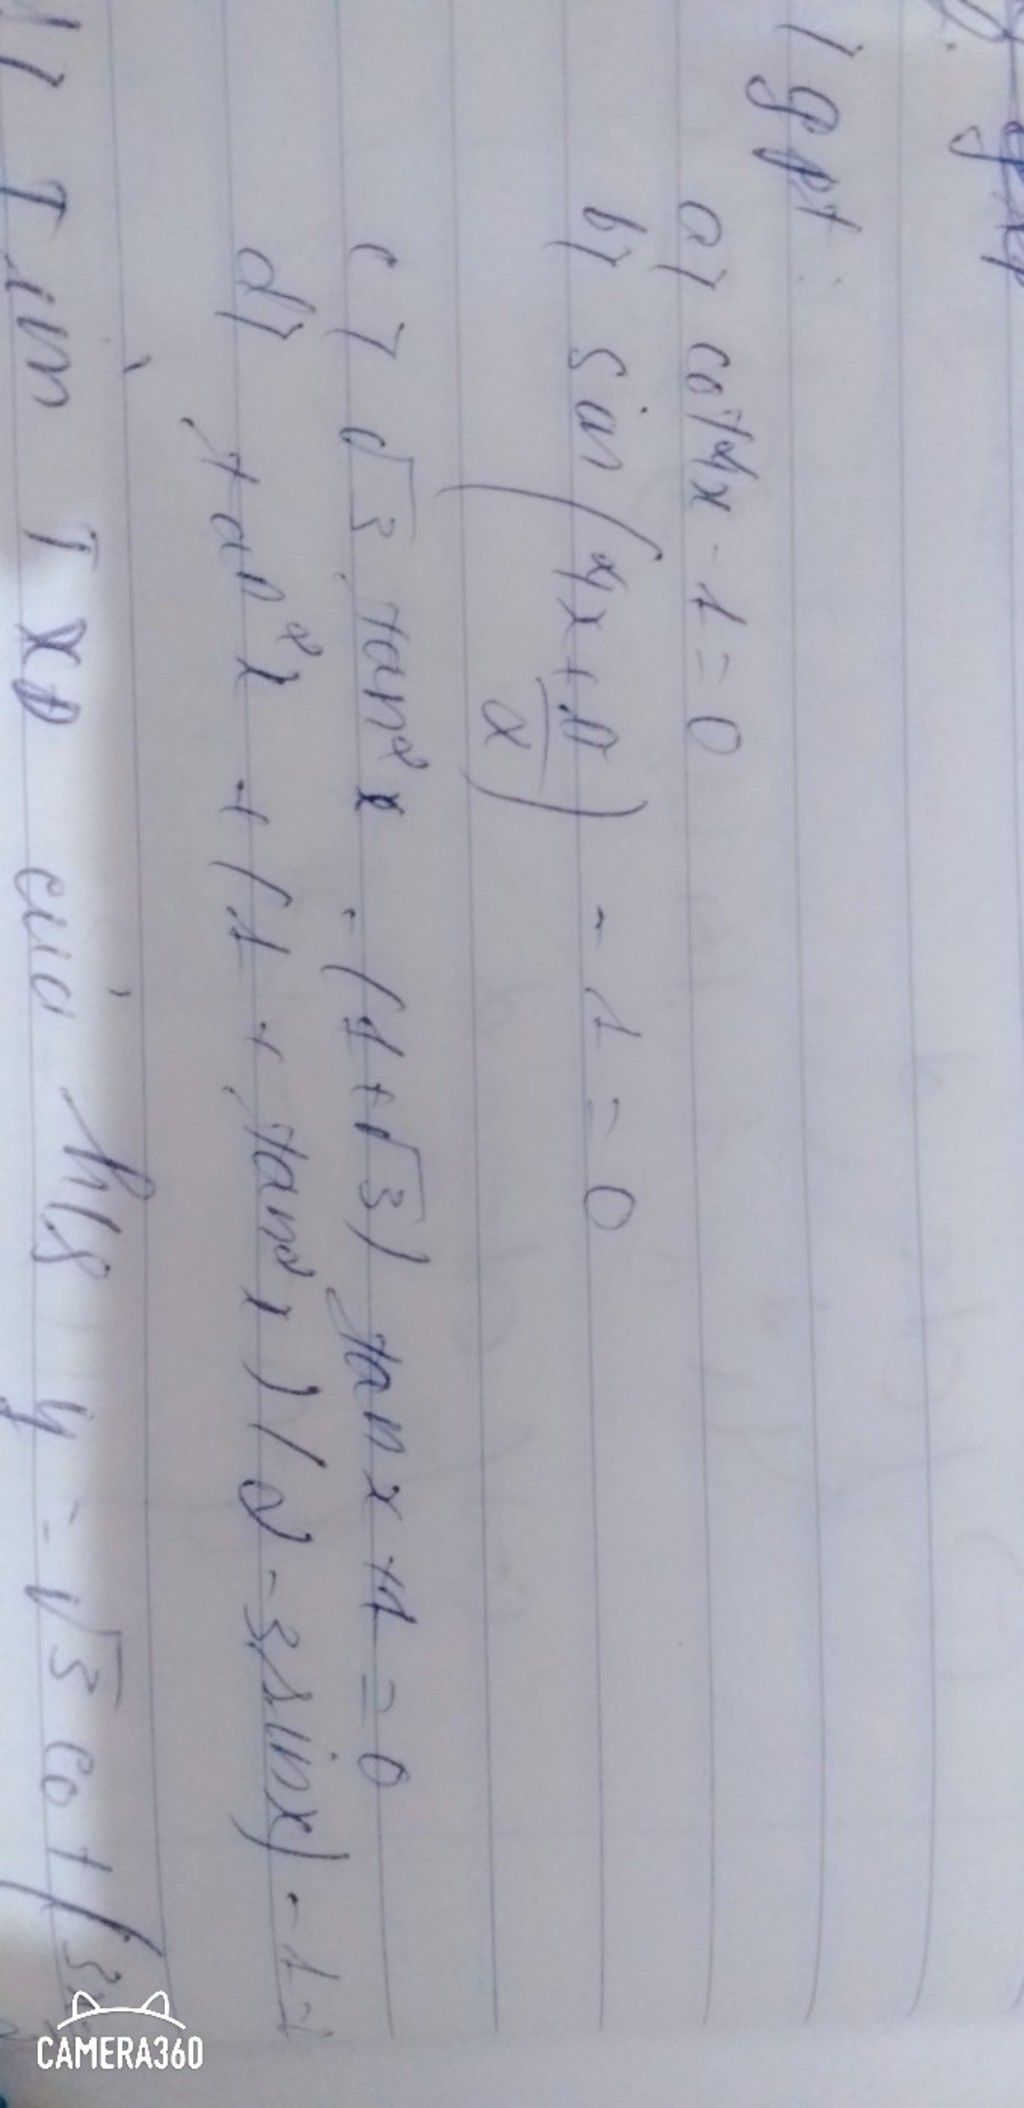 1, gpt:
a, cot4x - 1 = 0
b, sin (4x + π/2) - 1 = 0
c, √3 tan²x - (1+√3) tanx + 1 = 0
d, tan²x + (1 + tan²x) (2 - 3sinx) - 1 =
Tìm TXĐ của h/s y = √3 cot (3x
CAMERA360